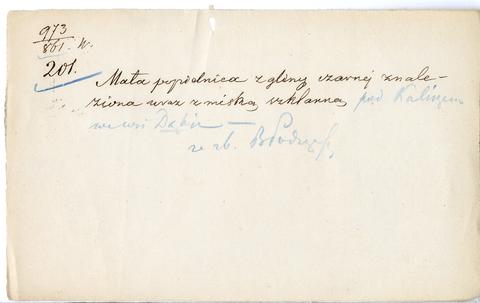 973
861. W.
201.
Mała popielnica z gliny czarnej znale-
ziona wraz z miską szklanną pod Kaliszem
we wsi Dąbie —
ze zb.